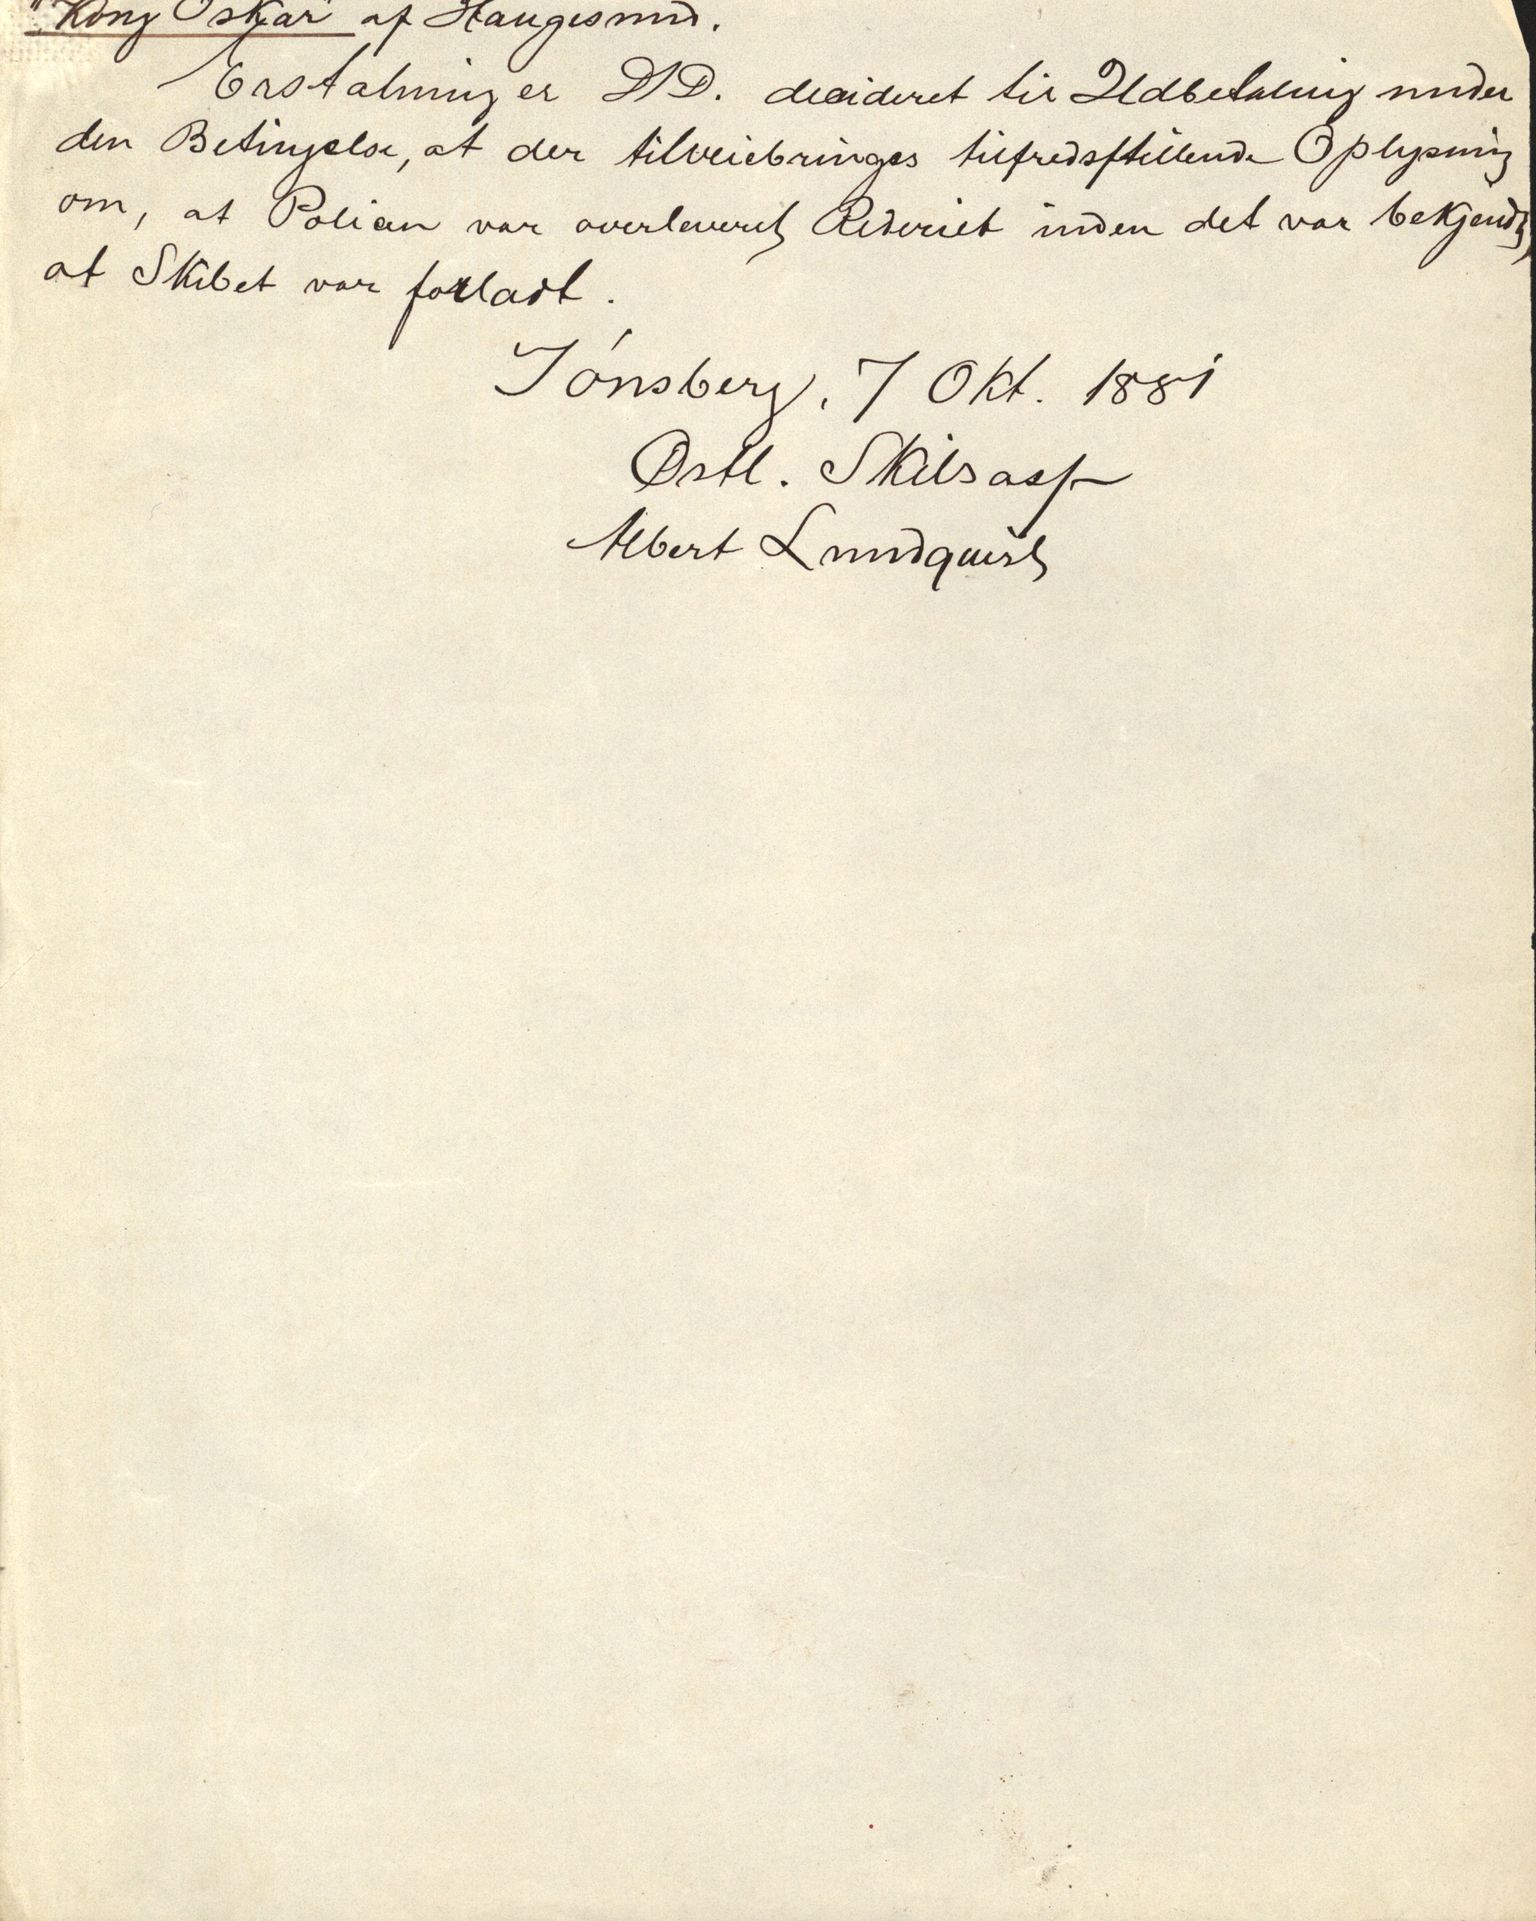 "Kong Oskar" af Haugesund.
Erstatning er D/D. decideret til Udbetaling under
den Betingelse, at der tilveiebringes tilfredsstillende Oplysning
om, at Policen var overleveret Rederiet inden det var bekjendt,
at Skibet var forladt.
Tönsberg, 7 Okt. 1881
Østl. Skibsassf
Albert Lundquist